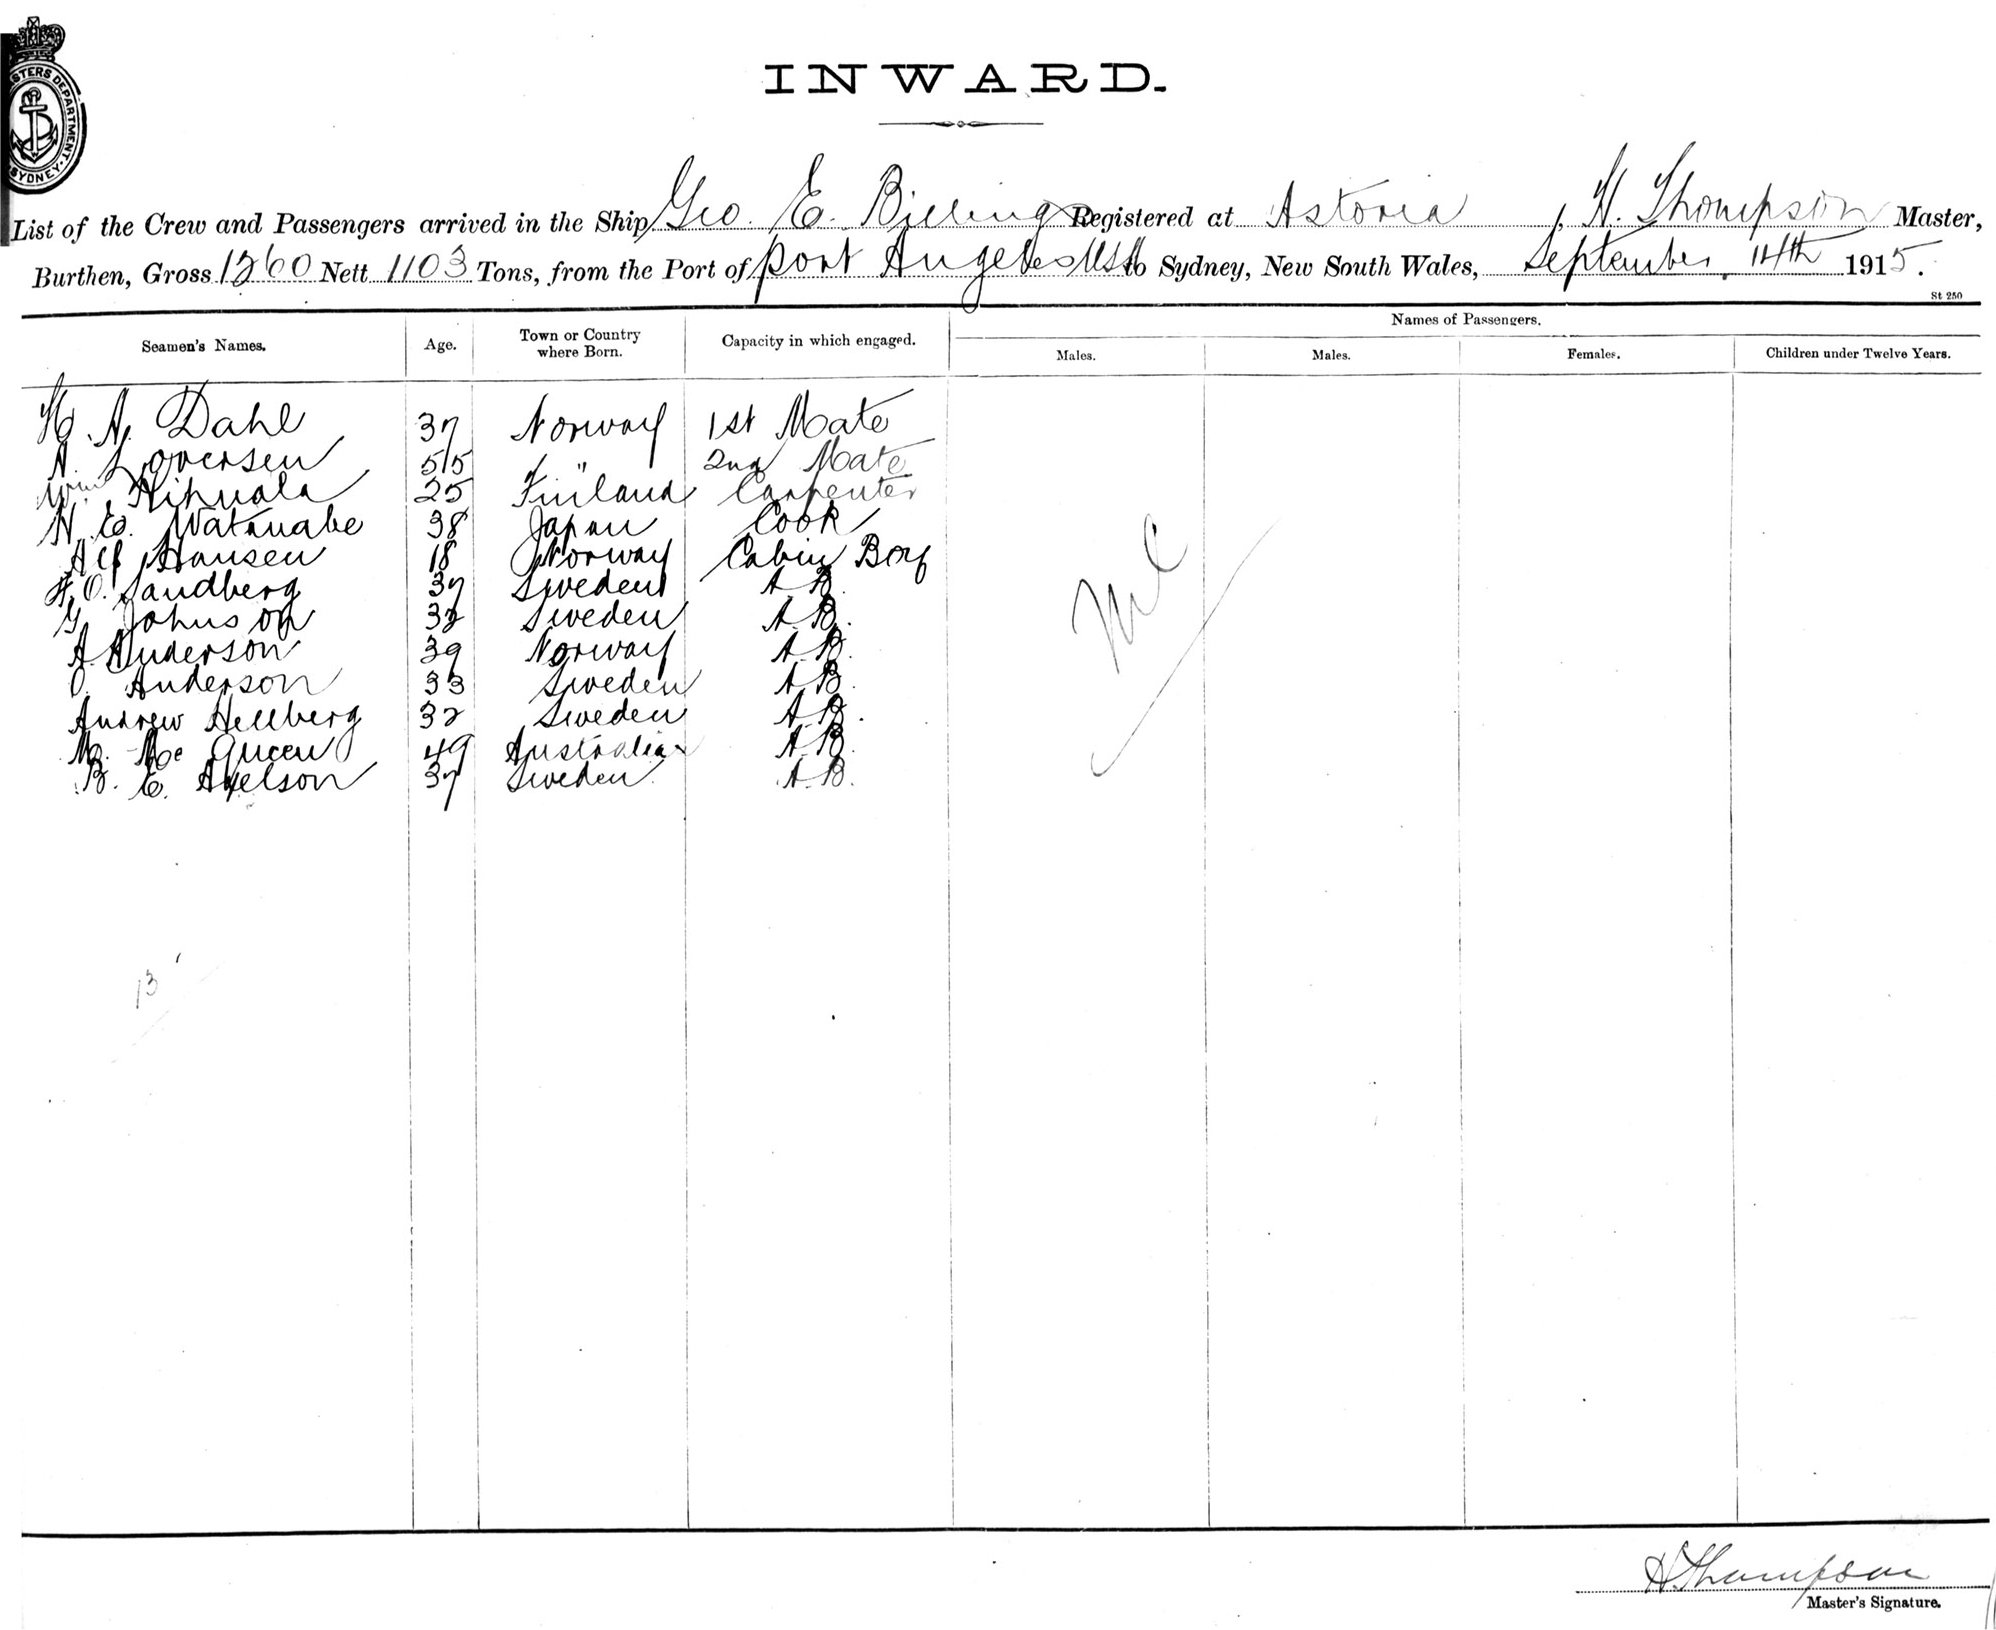 STERS DEPARTMENT. SYDNEY
INWARD.
List of the Crew and Passengers arrived in the Ship Geo. E. Billings Registered at Astoria, H. Thompson Master,
Burthen, Gross 1260 Nett 1103 Tons, from the Port of Port Angeles USA to Sydney, New South Wales, September 14th 1915.
St 250
Names of Passengers.
Seamen's Names. Age. Town or Country where Born. Capacity in which engaged. Males. Males. Females. Children under Twelve Years.
H. A. Dahl 37 Norway 1st Mate
A. 55 " 2nd Mate
Wm 25 Finland Carpenter
H. E. Watanabe 38 Japan Cook
Alf Hansen 18 Norway Cabin Boy
O. Sandberg 37 Sweden A.B.
G. Johnson 32 Sweden A.B.
A. Anderson 39 Norway A.B.
Anderson 33 Sweden A.B.
Andrew Hellberg 32 Sweden A.B.
M. Mc Queen 49 Australia A.B.
B. E. Axelson 37 Sweden A.B.
13
H. Thompson
Master's Signature.